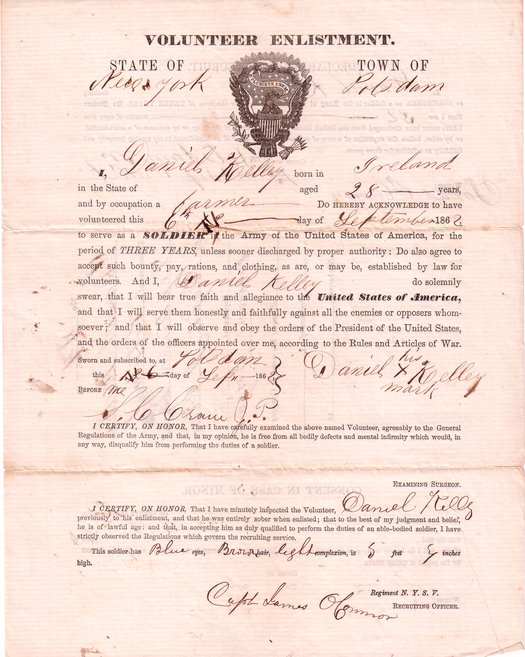 VOLUNTEER ENLISTMENT.
STATE OF TOWN OF
New York Potsdam
I, Daniel Kelley born in Ireland
in the State of aged 28 years,
and by occupation a Farmer Do HEREBY ACKNOWLEDGE to have
volunteered this 6th day of September 1862
to serve as a SOLDIER in the Army of the United States of America, for the
period of THREE YEARS, unless sooner discharged by proper authority: Do also agree to
accept such bounty, pay, rations, and clothing, as are, or may be, established by law for
volunteers. And I, Daniel Kelley do solemnly
swear, that I will bear true faith and allegiance to the United States of America,
and that I will serve them honestly and faithfully against all the enemies or opposers whom-
soever; and that I will observe and obey the orders of the President of the United States,
and the orders of the officers appointed over me, according to the Rules and Articles of War.
Sworn and subscribed to, at Potsdam
this 6 day of Sept 186
Before me
Daniel his x Kelley
mark
S. C. Crane J. P.
I CERTIFY, ON HONOR, That I have carefully examined the above named Volunteer, agreeably to the General
Regulations of the Army, and that, in my opinion, he is free from all bodily defects and mental infirmity which would, in
any way, disqualify him from performing the duties of a soldier.
EXAMINING SURGEON.
I CERTIFY, ON HONOR, That I have minutely inspected the Volunteer, Daniel Kelly
previously to his enlistment, and that he was entirely sober when enlisted; that to the best of my judgment and belief,
he is of lawful age; and that, in accepting him as duly qualified to perform the duties of an able-bodied soldier, I have
strictly observed the Regulations which govern the recruiting service.
This soldier has Blue eyes, Brown hair, light complexion, is 5 feet 7 inches
high.
Capt James O Connor
Regiment N. Y. S. V.
RECRUITING OFFICER.